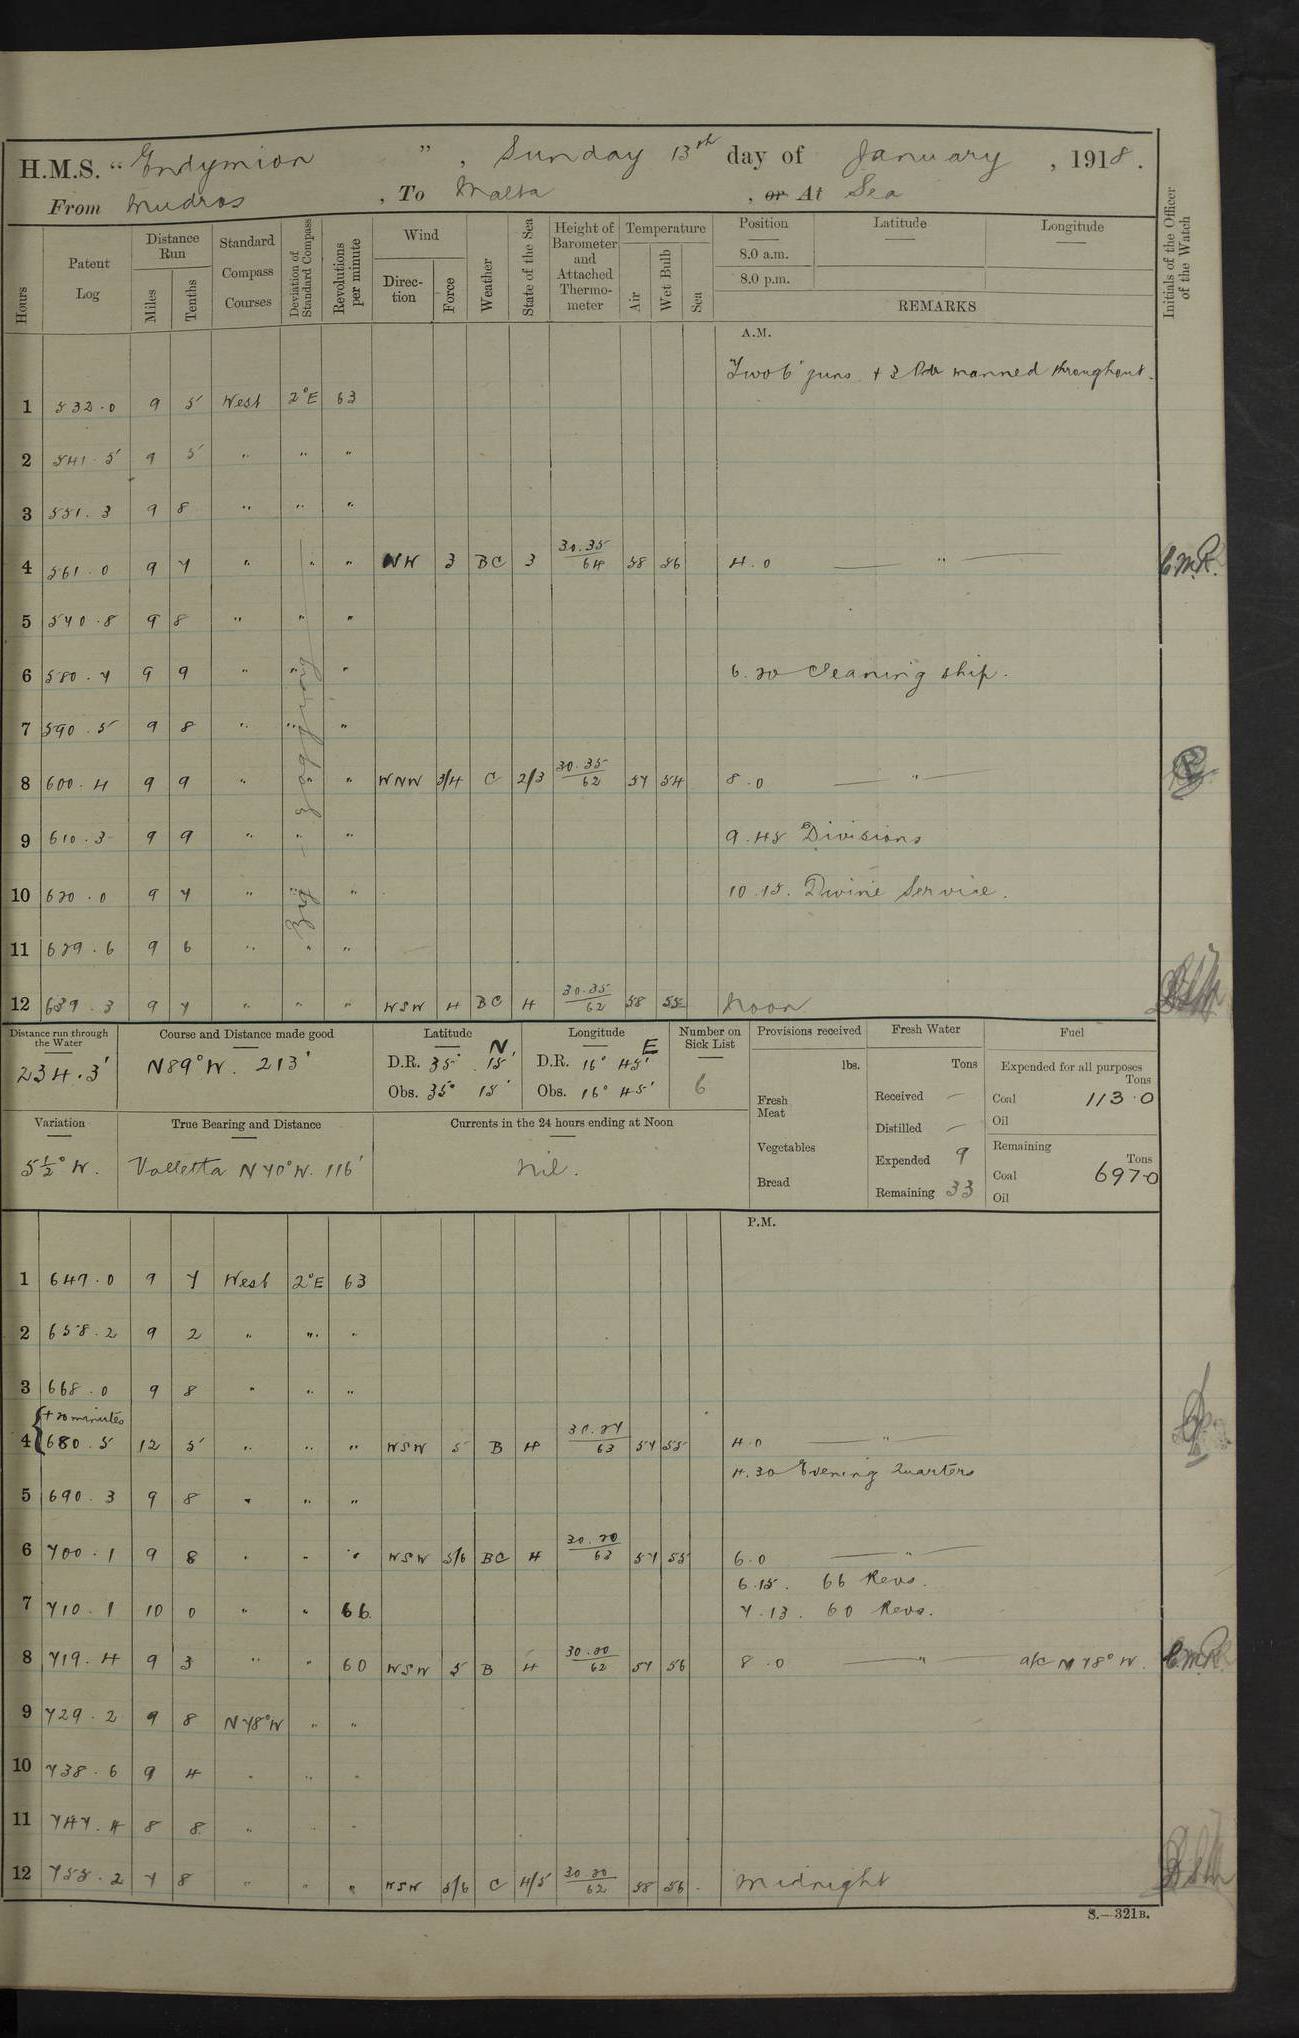 H.M.S. “ Endymion ” , Sunday 13th day of January , 1918 .
From Mudros , To Malta , or At Sea
Hours | Patent Log | Distance Run Miles Tenths | Standard Compass Courses | Deviation of Standard Compass | Revolutions per minute | Wind Direction Force | Weather | State of the Sea | Height of Barometer and Attached Thermometer | Temperature Air Wet Bulb Sea | Position 8.0 a.m. 8.0 p.m. | Latitude | Longitude | REMARKS | Initials of the Officer of the Watch
A.M.
Two 6" guns + 3 manned throughout.
1 532.0 9 5 West 2°E 63
2 541.5 9 5 " " "
3 551.3 9 8 " " "
4 561.0 9 7 " " " NW 3 BC 3 30.35/64 58 56 4.0 — " — C.M.R.
5 570.8 9 8 " " "
6 580.7 9 9 " " " 6.20 Cleaning ship.
7 590.5 9 8 " " "
8 600.4 9 9 " " WNW 3/4 C 2/3 30.35/62 57 54 8.0 — " —
Zig - Zagging
9 610.3 9 9 " " " 9.45 Divisions
10 620.0 9 7 " " 10.15. Divine Service.
11 629.6 9 6 " " "
12 639.3 9 7 " " " WSW 4 BC 4 30.35/62 58 55 Noon
Distance run through the Water
234.3'
Course and Distance made good
N89°W. 213'
Latitude N
D.R. 35° 15'
Obs. 35° 15'
Longitude E
D.R. 16° 45'
Obs. 16° 45'
Number on Sick List
6
Provisions received
lbs.
Fresh Meat
Vegetables
Bread
Fresh Water
Tons
Received —
Distilled —
Expended 9
Remaining 33
Fuel
Expended for all purposes
Tons
Coal 113.0
Oil
Remaining
Tons
Coal 697.0
Oil
Variation
5½° W.
True Bearing and Distance
Valletta N70°W. 116'
Currents in the 24 hours ending at Noon
Nil.
P.M.
1 649.0 9 7 West 2°E 63
2 658.2 9 2 " " "
3 668.0 9 8 " " "
+20 minutes
4 680.5 12 5 " " " WSW 5 B 4 30.27/63 57 55 4.0 — " —
4.30 Evening Quarters
5 690.3 9 8 " " "
6 700.1 9 8 " " " WSW 5/6 BC 4 30.20/63 57 55 6.0 — " —
6.15. 66 Revs.
7 710.1 10 0 " " 66 7.13. 60 Revs.
8 719.4 9 3 " " 60 WSW 5 B 4 30.20/62 57 56 8.0 — " — a/c N78°W. C.M.R.
9 729.2 9 8 N78°W " "
10 738.6 9 4 " " "
11 747.4 8 8 " " "
12 755.2 7 8 " " " WSW 5/6 C 4/5 30.20/62 58 56 Midnight
S.—321B.